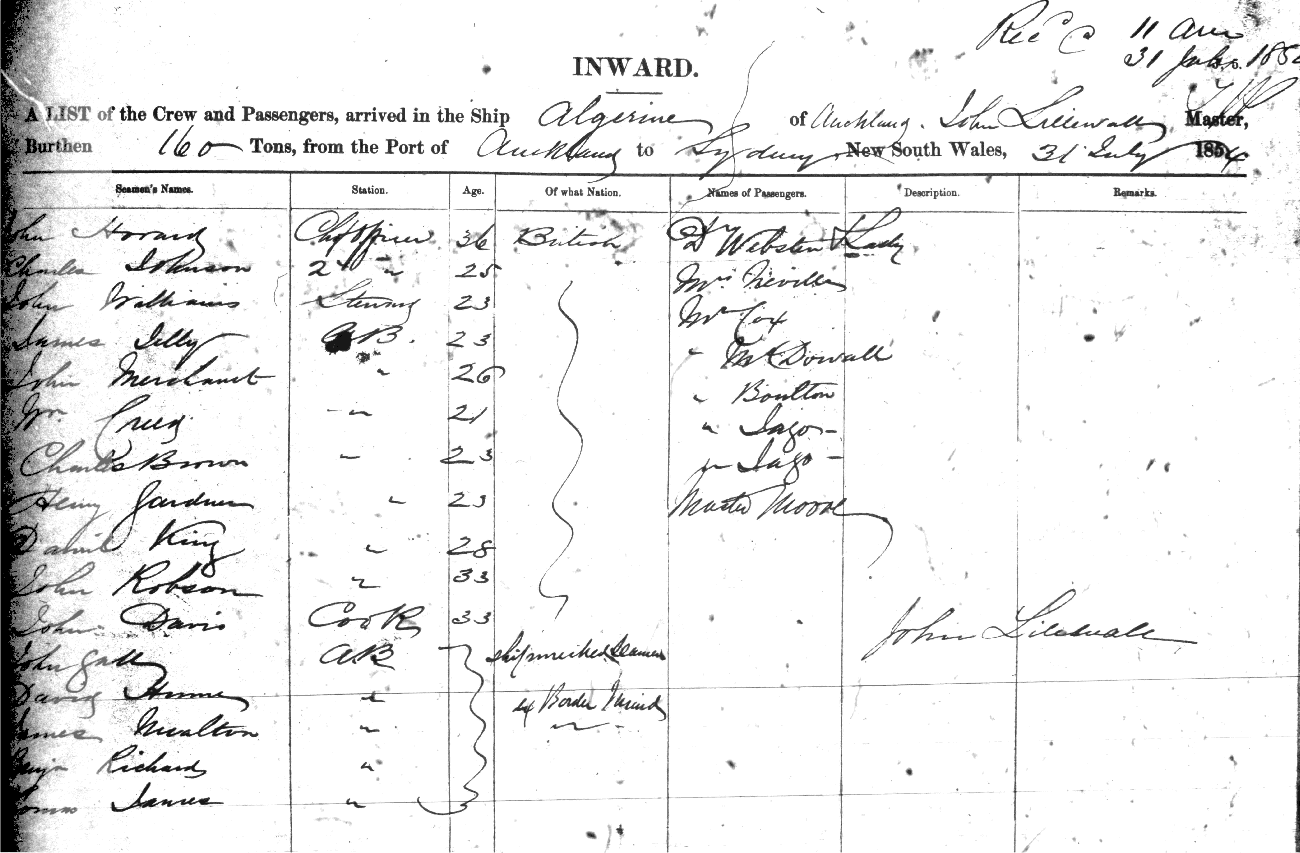 11 am
31 July 185
INWARD.
A LIST of the Crew and Passengers, arrived in the Ship Algerine of Auckland. John Lillewall Master,
Burthen 160 Tons, from the Port of Auckland to Sydney New South Wales, 31 July 1854
Seamen's Names. Station. Age. Of what Nation. Names of Passengers. Description. Remarks.
John Howard Chf Officer 36 British Dr Webster & Lady
Charles Johnson 2 " " 25 Mrs Neville
John Williams Steward 23 Mr Cox
James Jelly AB. 23 " McDowall
John Merchant " 26 " Boulton
Wm Creed " 21 " Iago
Charles Brown " 23 Jr Iago
Henry Gardner " 23 Master Moore
David King " 28
John Robson " 33
John Davis Cook 33 John Lillewall
John Gall AB shipwrecked Seamen
David Hume " ex Border
James Moulton " "
Benjn Richards "
James "